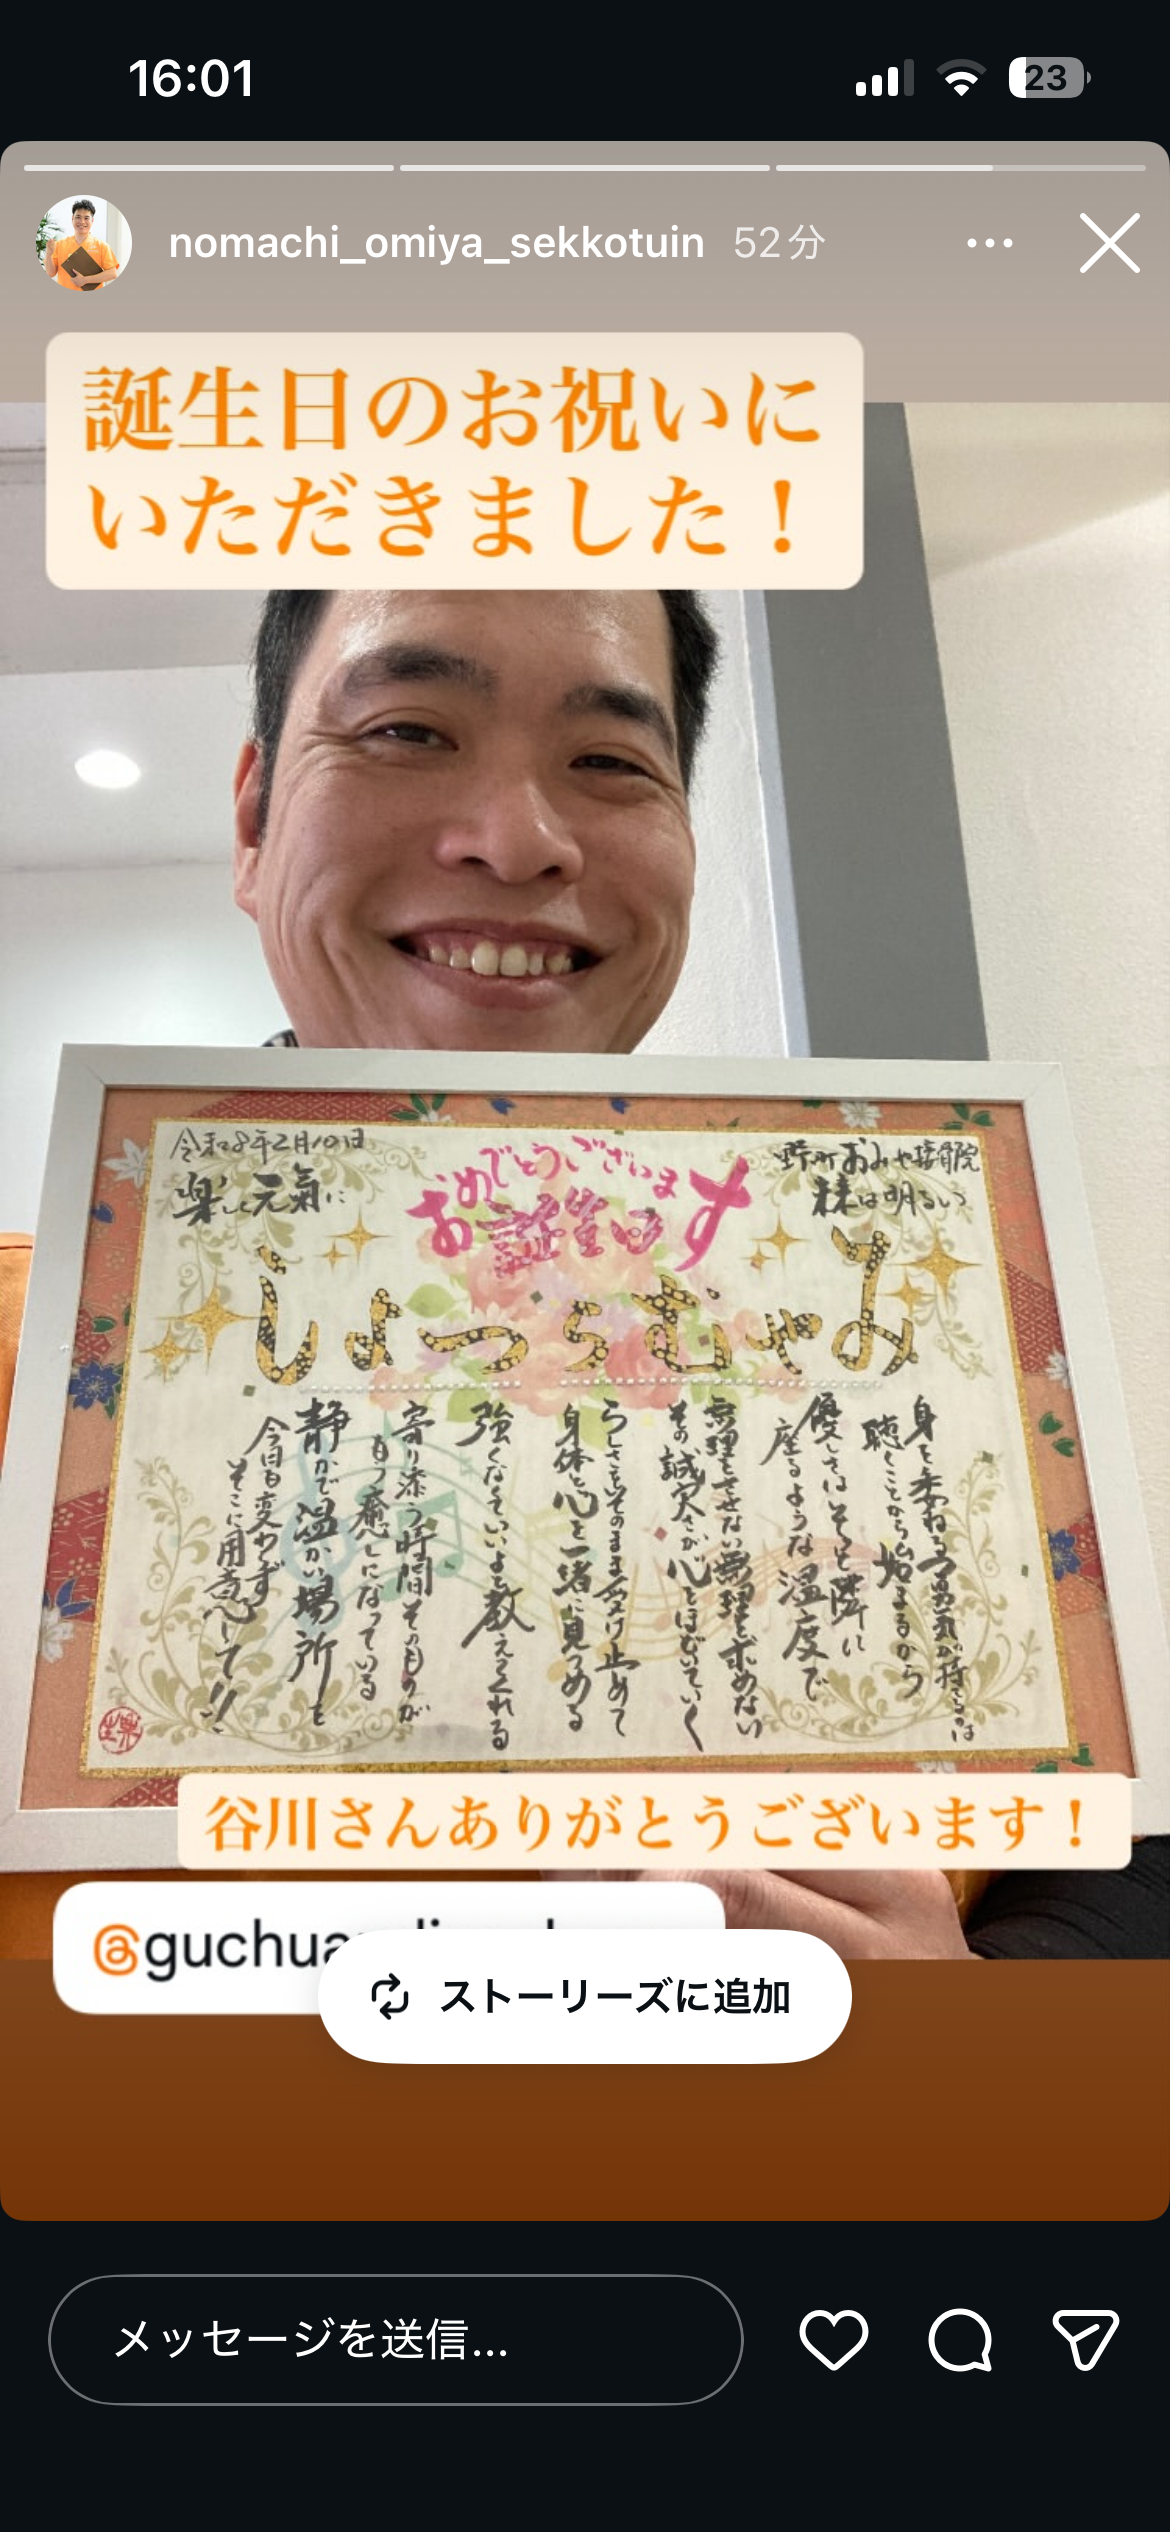 16:01
23
nomachi_omiya_sekkotuin 52分
誕生日のお祝いに
いただきました！
令和8年2月10日
楽しく元氣に
おめでとうございます
お誕生日
野町おおみや接骨院
は明るい
身を委ねる勇気が持てるのは
聴くことから始まるから
優しさはそっと隣に
座るような温度で
無理をさせない無理を求めない
その誠実さが心をほどいていく
らしさをそのまま受け止めて
身体と心を一緒に見つめる
強くなくていいよと教えてくれる
寄り添う時間そのものが
もう癒しになっている
静かで温かい場所を
今日も変わらず
そこに用意して!!
谷川さんありがとうございます！
@guchua
ストーリーズに追加
メッセージを送信...